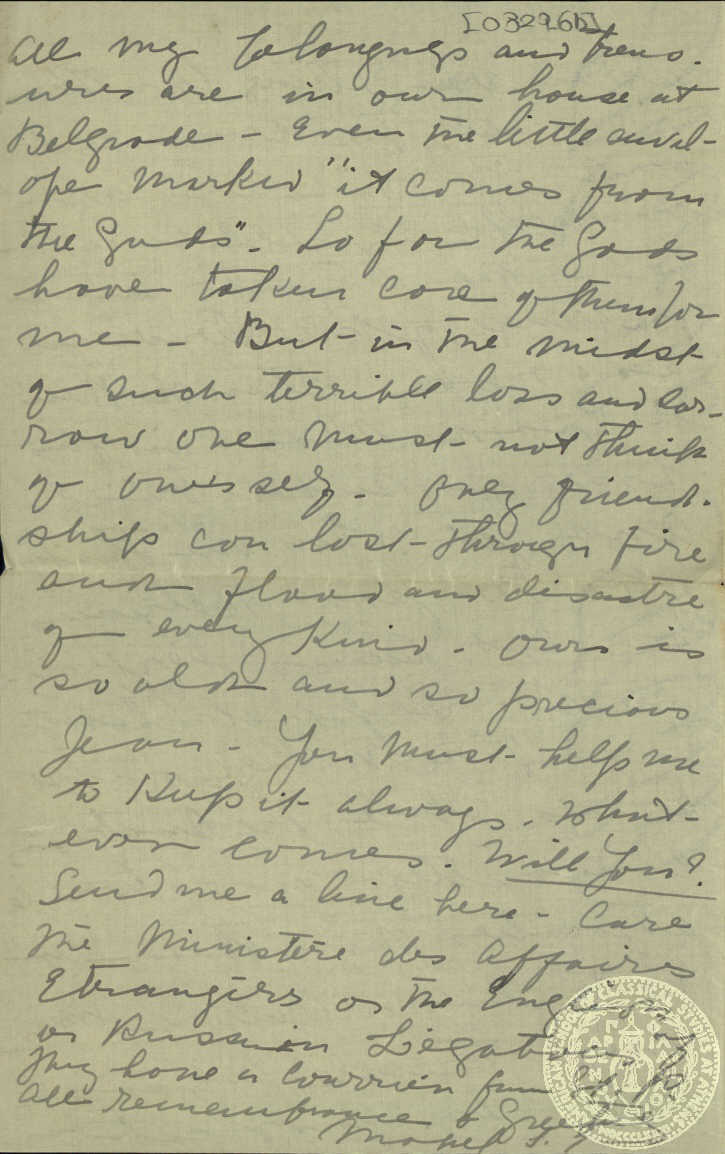 [032966]
all my belongings and treas-
ures are in our house at
Belgrade - Even the little envel-
ope marked "it comes from
the Gods". So far the Gods
have taken care of them for
me - But in the midst
of such terrible loss and sor-
row one must not think
of one's self. Only friend-
ship can last through fire
and flood and disastre
of every kind. Ours is
so old and so precious
Jean - You must help me
to keep it always. What-
ever comes. Will You?
Send me a line here - Care
the Ministère des Affaires
Etrangères or the English
or Russian Legations
They have a courrier from
All remembrance & Greet
Mabel